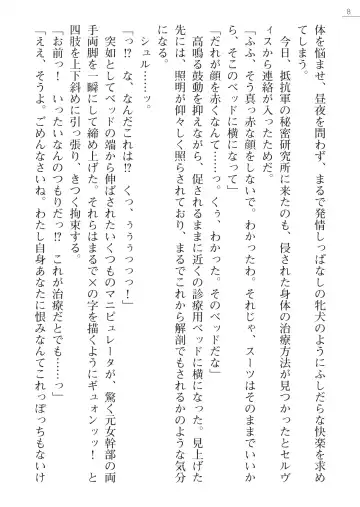 8
体を悩ませ、昼夜を問わず、まるで発情しっぱなしの牝犬のようにふしだらな快楽を求め
てしまう。
　今日、抵抗軍の秘密研究所に来たのも、侵された身体の治療方法が見つかったとセルヴ
ィスから連絡が入ったためだ。
「ふふ、そう真っ赤な顔をしないで。わかったわ。それじゃ、スーツはそのままでいいか
ら、そこのベッドに横になって」
「だれが顔を赤くなんて……っ。くぅ、わかった。そのベッドだな」
　高鳴る鼓動を抑えながら、促されるままに近くの診療用ベッドに横になった。見上げた
先には、照明が仰々しく照らされており、まるでこれから解剖でもされるかのような気分
になる。
　シュル……ーッ。
「っ!?　な、なんだこれは!?　くっ、ぅぅぅっっっ！」
　突如としてベッドの端から伸ばされたいくつものマニピュレータが、驚く元女幹部の両
手両脚を一瞬にして締め上げた。それらはまるで×の字を描くようにギュォンッッ！　と
四肢を上下斜めに引っ張り、きつく拘束する。
「お前っ！　いったいなんのつもりだっ!?　これが治療だとでも……っ」
「ええ、そうよ。ごめんなさいね。わたし自身あなたに恨みなんてこれっぽっちもないけ